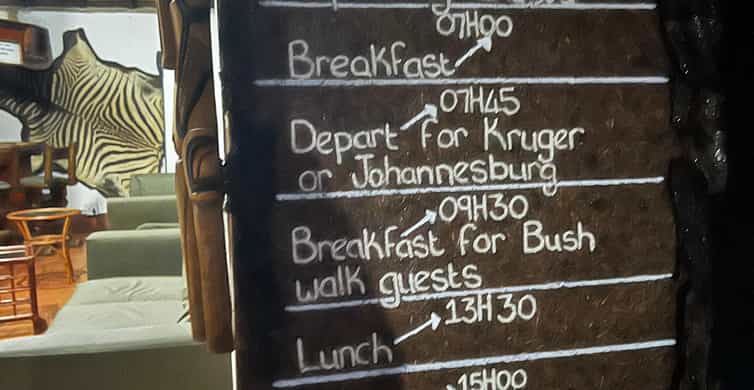 07H00
Breakfast
07H45
Depart for Kruger
or Johannesburg
09H30
Breakfast for Bush
walk guests
13H30
Lunch
15H00